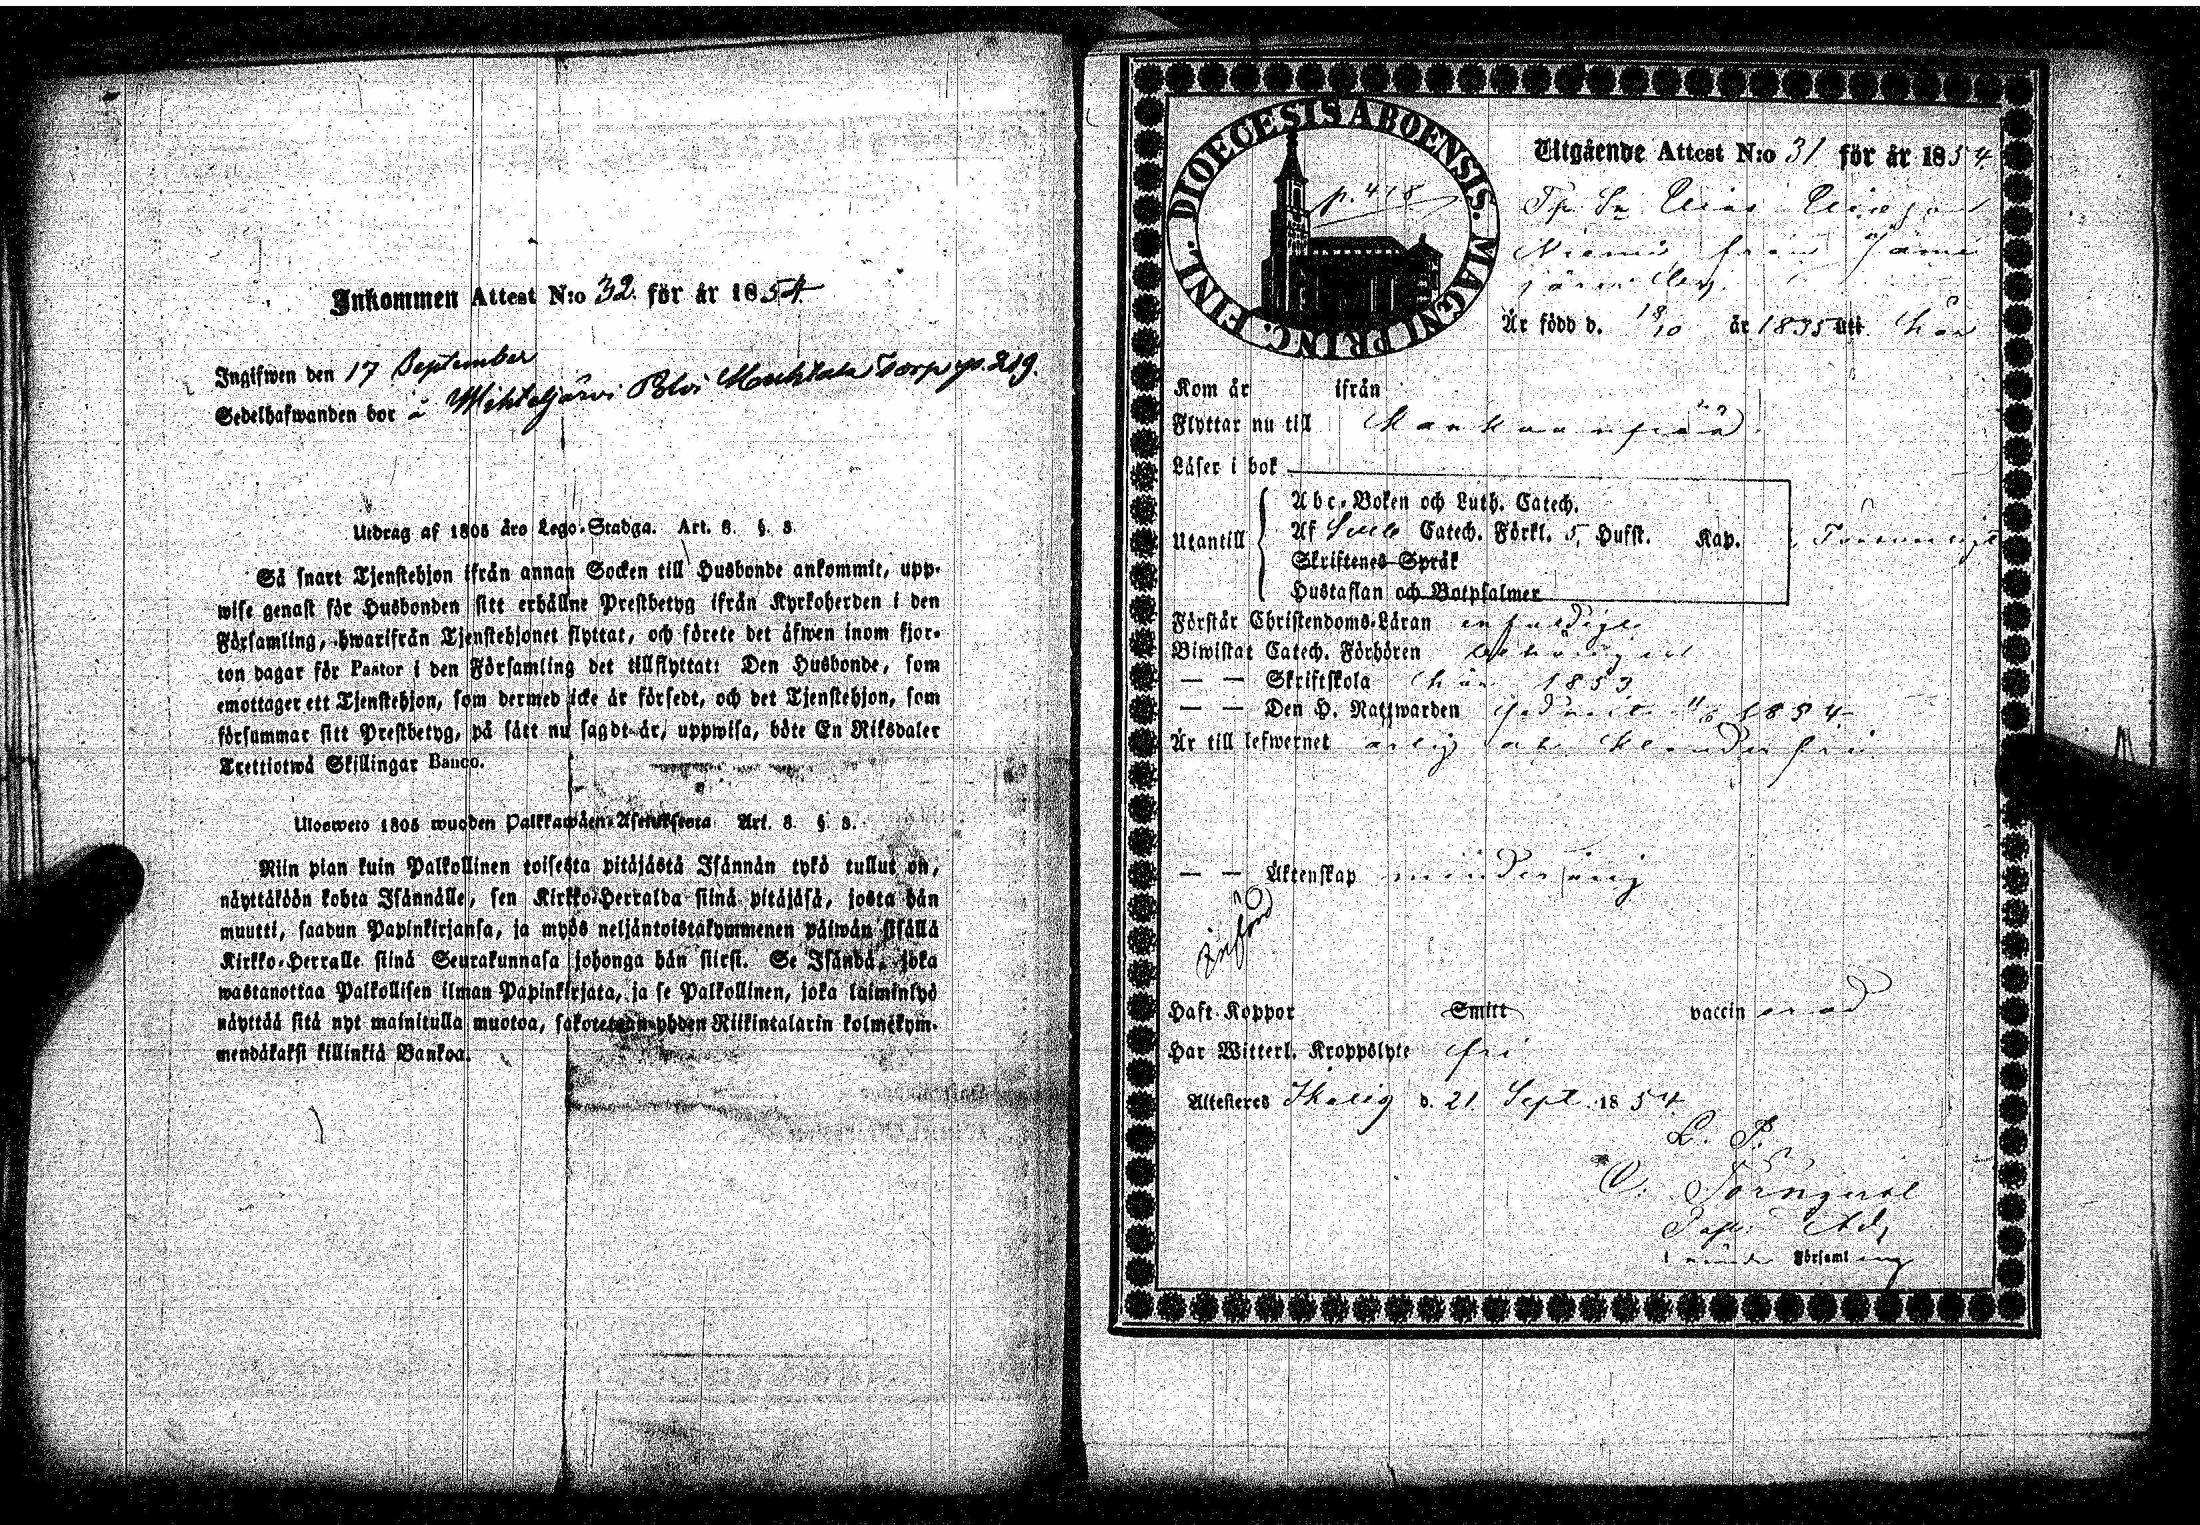 Inkommen Attest N:o 32 för år 1854
Ingifwen den 17 September
Sedelhafwanden bor å Torp p. 219.
Utdrag af 1805 års Lego-Stadga. Art. 8. §. 8.
Så snart Tjenstehjon ifrån annan Socken till Husbonde ankommit, upp-
wise genast för Husbonden sitt erhållne Prestbetyg ifrån Kyrkoherden i den
Församling, hwarifrån Tjenstehjonet flyttat, och förete det äfwen inom fjor-
ton dagar för Pastor i den Församling det tillflyttat: Den Husbonde, som
emottager ett Tjenstehjon, som dermed icke är försedt, och det Tjenstehjon, som
försummar sitt Prestbetyg, på sätt nu sagdt är, uppwisa, böte En Riksdaler
Trettiotwå Skillingar Banco.
Ulosweto 1805 wuoden Palkkawäen-Asetuksesta Art. 8. §. 8.
Niin pian kuin Palkollinen toisesta pitäjästä Isännän tykö tullut on,
näyttäköön kohta Isännälle, sen Kirkko-Herralda siinä pitäjäsä, josta hän
muutti, saadun Papinkirjansa, ja myös neljäntoistakymmenen päiwän sisällä
Kirkko-Herralle siinä Seurakunnasa johonga hän siirsi. Se Isändä, joka
wastanottaa Palkollisen ilman Papinkirjata, ja se Palkollinen, joka laiminlyö
näyttää sitä nyt mainitulla muotoa, sakotetaan yhden Riikintalarin kolmekym-
mendäkaksi killinkiä Bankoa.
DIOECESIS ABOENSIS. MAGNI PRINC. FINL.
p. 418
Utgående Attest N:o 31 för år 1854
Elias
Niemi från Jämi
järvi by
Är född d. 18/10 år 1835 utt här
Kom år ifrån
Flyttar nu till Kankaanpää
Läser i bok
Utantill
Abc-Boken och Luth. Catech.
Af Catech. Förkl. 5 Hufst. Kap.
Skriftenes Språk
Hustaflan och Botpsalmer
Förstår Christendoms-Läran enfaldigt
Biwistat Catech. Förhören
— — Skriftskola här 1853
— — Den H. Nattwarden 1854
Är till lefwernet ärlig och klanderfri
— — Äktenskap minderårig
införd
Haft Koppor Smitt vaccinerad
Har Witterl. Kroppslyte fri
Attesteres Ikalis d. 21 Sept. 1854.
L. P.
O. Törnqvist
Past. Adj.
i Församling